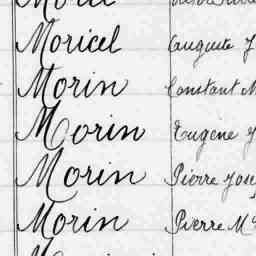 Moricel Auguste J
Morin Constant M
Morin Eugène J
Morin Pierre Jose
Morin Pierre M